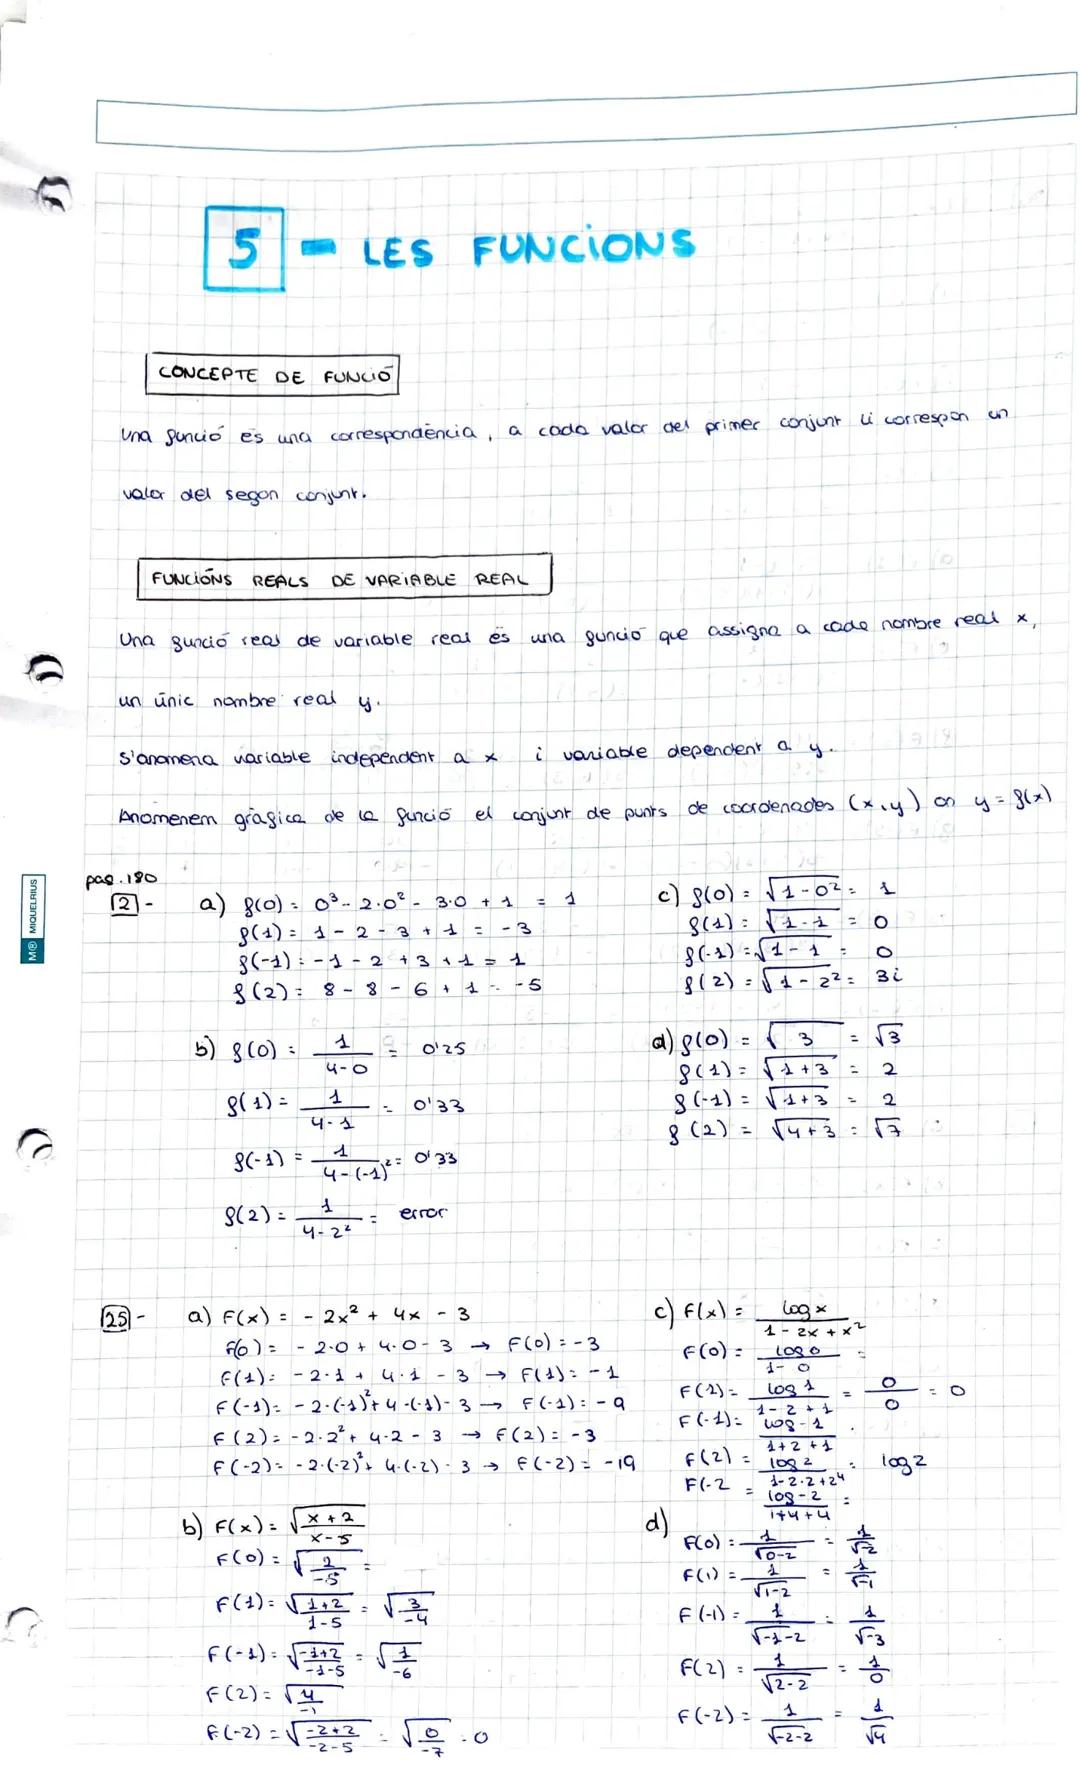 5 - LES FUNCIONS
CONCEPTE DE FUNCIÓ
Una funció és una correspondència, a cada valor del primer conjunt li correspon un
valor del segon conjunt.
FUNCIÓNS REALS DE VARIABLE REAL
Una funció real de variable real és una funció que assigna a cada nombre real x,
un únic nombre real y.
S'anomena variable independent a x i variable dependent a y.
Anomenem gràfica de la funció el conjunt de punts de coordenades (x,y) on y = f(x)
M® MIQUELRIUS
pag. 180
2 -
a) f(0) = 0³ - 2·0² - 3·0 + 1 = 1
f(1) = 1 - 2 - 3 + 1 = -3
f(-1) = -1 - 2 + 3 + 1 = 1
f(2) = 8 - 8 - 6 + 1 = -5
b) f(0) = 1/(4-0) = 0'25
f(1) = 1/(4-1) = 0'33
f(-1) = 1/(4-(-1)²) = 0'33
f(2) = 1/(4-2²) = error
c) f(0) = √(1-0²) = 1
f(1) = √(1-1) = 0
f(-1) = √(1-1) = 0
f(2) = √(1-2²) = 3i
d) f(0) = √3 = √3
f(1) = √(1+3) = 2
f(-1) = √(1+3) = 2
f(2) = √(4+3) = √7
25 -
a) F(x) = -2x² + 4x - 3
F(0) = -2·0 + 4·0 - 3 → F(0) = -3
F(1) = -2·1 + 4·1 - 3 → F(1) = -1
F(-1) = -2·(-1)² + 4·(-1) - 3 → F(-1) = -9
F(2) = -2·2² + 4·2 - 3 → F(2) = -3
F(-2) = -2·(-2)² + 4·(-2) - 3 → F(-2) = -19
b) F(x) = √((x+2)/(x-5))
F(0) = √(2/-5) =
F(1) = √((1+2)/(1-5)) = √(3/-4)
F(-1) = √((-1+2)/(-1-5)) = √(1/-6)
F(2) = √(4/-1)
F(-2) = √((-2+2)/(-2-5)) = √(0/-7) = 0
c) F(x) = log x/(1-2x+x²)
F(0) = log 0/(1-0) =
F(1) = log 1/(1-2+1) = 0/0 = 0
F(-1) = log-1/(1+2+1)
F(2) = log 2/(1-2·2+2⁴) = log 2
F(-2 = log-2/(1+4+4) =
d)
F(0) = 1/√(0-2) = 1/√-2
F(1) = 1/√(1-2) = 1/√-1
F(-1) = 1/√(-1-2) = 1/√-3
F(2) = 1/√(2-2) = 1/0
F(-2) = 1/√(-2-2) = 1/√4